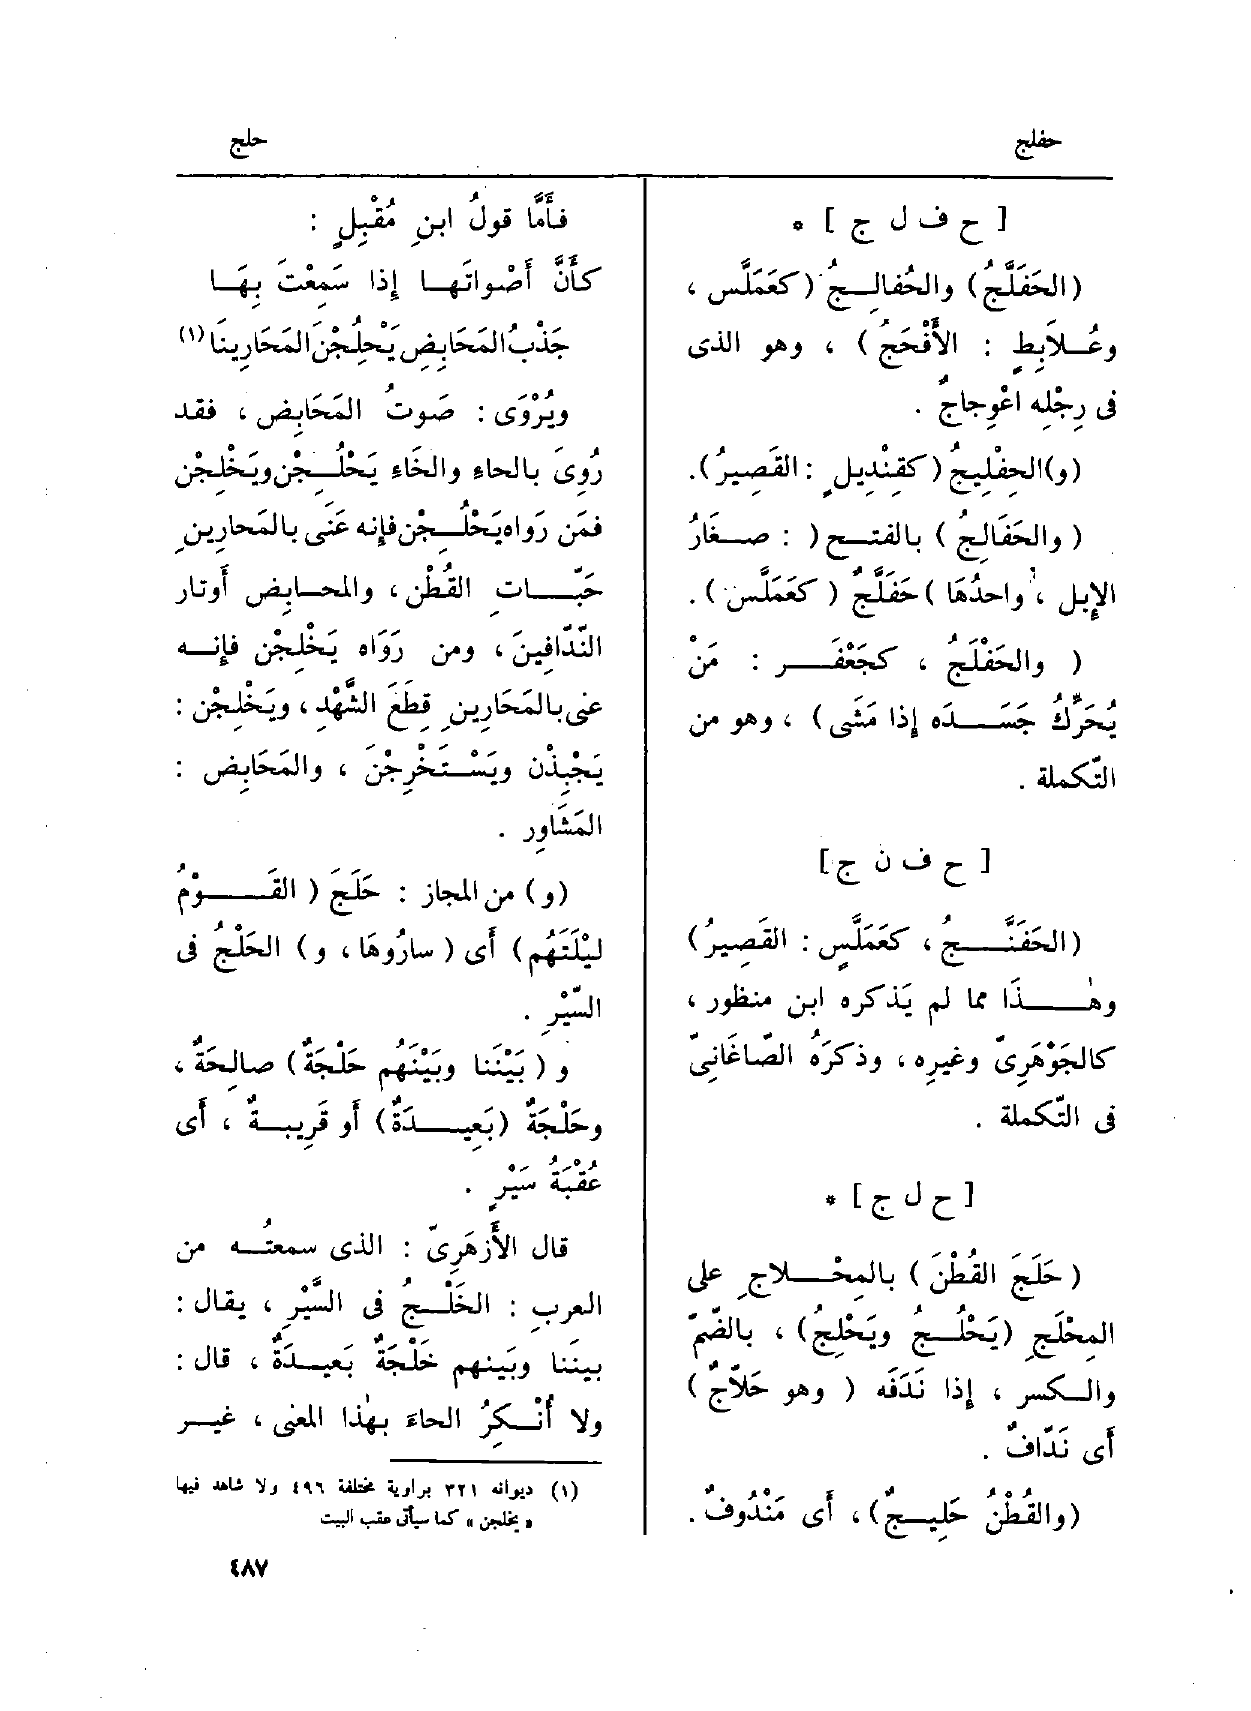 حفلج
حلج
[ ح ف ل ج ] *
(الحَفَلَّجُ) والحُفالِـجُ (كعَمَلَّس ،
وعُـلاَبِطٍ : الأَفْحَجُ ) ، وهو الذى
فى رِجْلِه اعْوِجاجٌ .
(و)الحِفْلِيجُ (كقِنْدِيلٍ : القَصِيرُ).
( والحَفَالِجُ ) بالفتـح ( : صـغَارُ
الإِبل ، واحدُهَا ) حَفَلَّجٌ ( كَعَمَلَّس ) .
( والحَفْلَجُ ، كجَعْفَـر : مَنْ
يُحَرِّكُ جَسَـدَه إذا مَشَى ) ، وهو من
التّكملة .
[ ح ف ن ج ]
(الحَفَنَّـجُ ، كعَمَلَّسٍ : القَصِيرُ)
وهـٰـذَا مما لم يَذكره ابن منظور ،
كالجَوْهَرِىّ وغيرِه ، وذكرَهُ الصّاغَانِىّ
فى التّكملة .
[ ح ل ج ] *
( حَلَجَ القُطْنَ ) بالمِحْـلاجِ على
المِحْلَجِ (يَحْلُـجُ ويَحْلِجُ) ، بالضّمّ
والـكسر ، إذا نَدَفَه ( وهو حَلاَّجٌ )
أَى نَدّافٌ .
(والقُطْنُ حَلِيـجٌ) ، أَى مَنْدُوفٌ .
فأَمَّا قولُ ابنِ مُقْبِلٍ :
كأَنَّ أَصْواتَهـا إذا سَمِعْتَ بِهَـا
جَذْبُ المَحَابِضِ يَحْلُجْنَ المَحَارِينَا (١)
ويُرْوَى : صَوتُ المَحَابِض ، فقد
رُوِىَ بالحاء والخَاءِ يَحْلُـجْن ويَخْلِجْن
فمَن رَواه يَحْلُـجْن فإنه عَنَى بالمَحارِينِ
حَبّـاتِ القُطْن ، والمحـابض أَوتار
النّدّافِينَ ، ومن رَوَاه يَخْلِجْن فإنـه
عنى بالمَحَارِينِ قِطَعَ الشَّهْدِ ، ويَخْلِجْن :
يَجْبِذْن ويَسْـتَخْرِجْنَ ، والمَحَابِض :
المَشَاوِر .
(و) من المجاز : حَلَجَ ( القَـوْمُ
لَيْلَتَهُم ) أَى ( سارُوهَا ، و ) الحَلْجُ فى
السَّيْرِ .
و ( بَيْنَنا وبَيْنَهُم حَلْجَةٌ ) صالِحَةٌ ،
وحَلْجَةٌ (بَعِيـدَةٌ) أَو قَرِيبـةٌ ، أَى
عُقْبَةُ سَيْرٍ .
قال الأَزهَرِىّ : الذى سمعتُـه من
العربِ : الخَلْـجُ فى السَّيْرِ ، يقال :
بينَنا وبَينهم خَلْجَةٌ بَعيـدَةٌ ، قال :
ولا أُنْـكِرُ الحاءَ بهٰذا المعنى ، غيـر
(١) ديوانه ٣٢١ براوية مختلفة ٤٩٦ ولا شاهد فيها
« يخلجن » كما سيأتى عقب البيت
٤٨٧